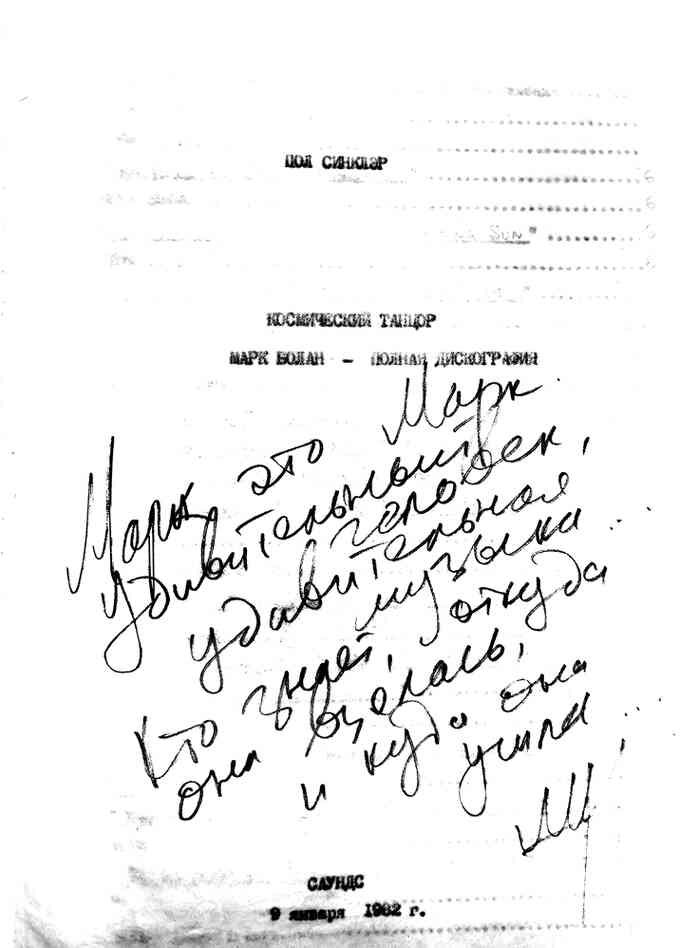 ПОЛ СИНКЛЭР
Sun"
КОСМИЧЕСКИЙ ТАНЦОР
МАРК БОЛАН - ПОЛНАЯ ДИСКОГРАФИЯ
Марк это Марк
удивительный
человек,
удивительная
музыка...
Кто знает, откуда
она взялась,
и куда она
ушла...
САУНДС
9 января 1982 г.